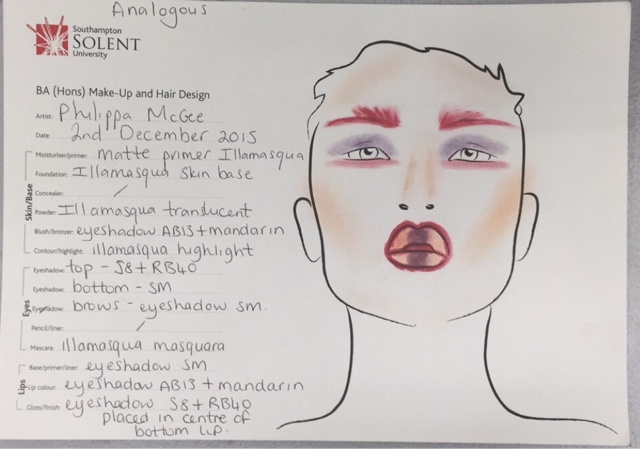 Analogous
Southampton
SOLENT
University
BA (Hons) Make-Up and Hair Design
Artist: Philippa McGee
Date: 2nd December 2015
Skin/Base
Moisturiser/primer: matte primer Illamasqua
Foundation: Illamasqua skin base
Concealer: /
Powder: Illamasqua translucent
Blush/bronzer: eyeshadow AB13 + mandarin
Contour/highlight: illamasqua highlight
Eyes
Eyeshadow: top - S8 + RB40
Eyeshadow: bottom - SM
Eyeshadow: brows - eyeshadow SM.
Pencil/liner: /
Mascara: illamasqua masquara
Lips
Base/primer/liner: eyeshadow SM
Lip colour: eyeshadow AB13 + mandarin
Gloss/finish: eyeshadow S8 + RB40
placed in centre of
bottom lip.